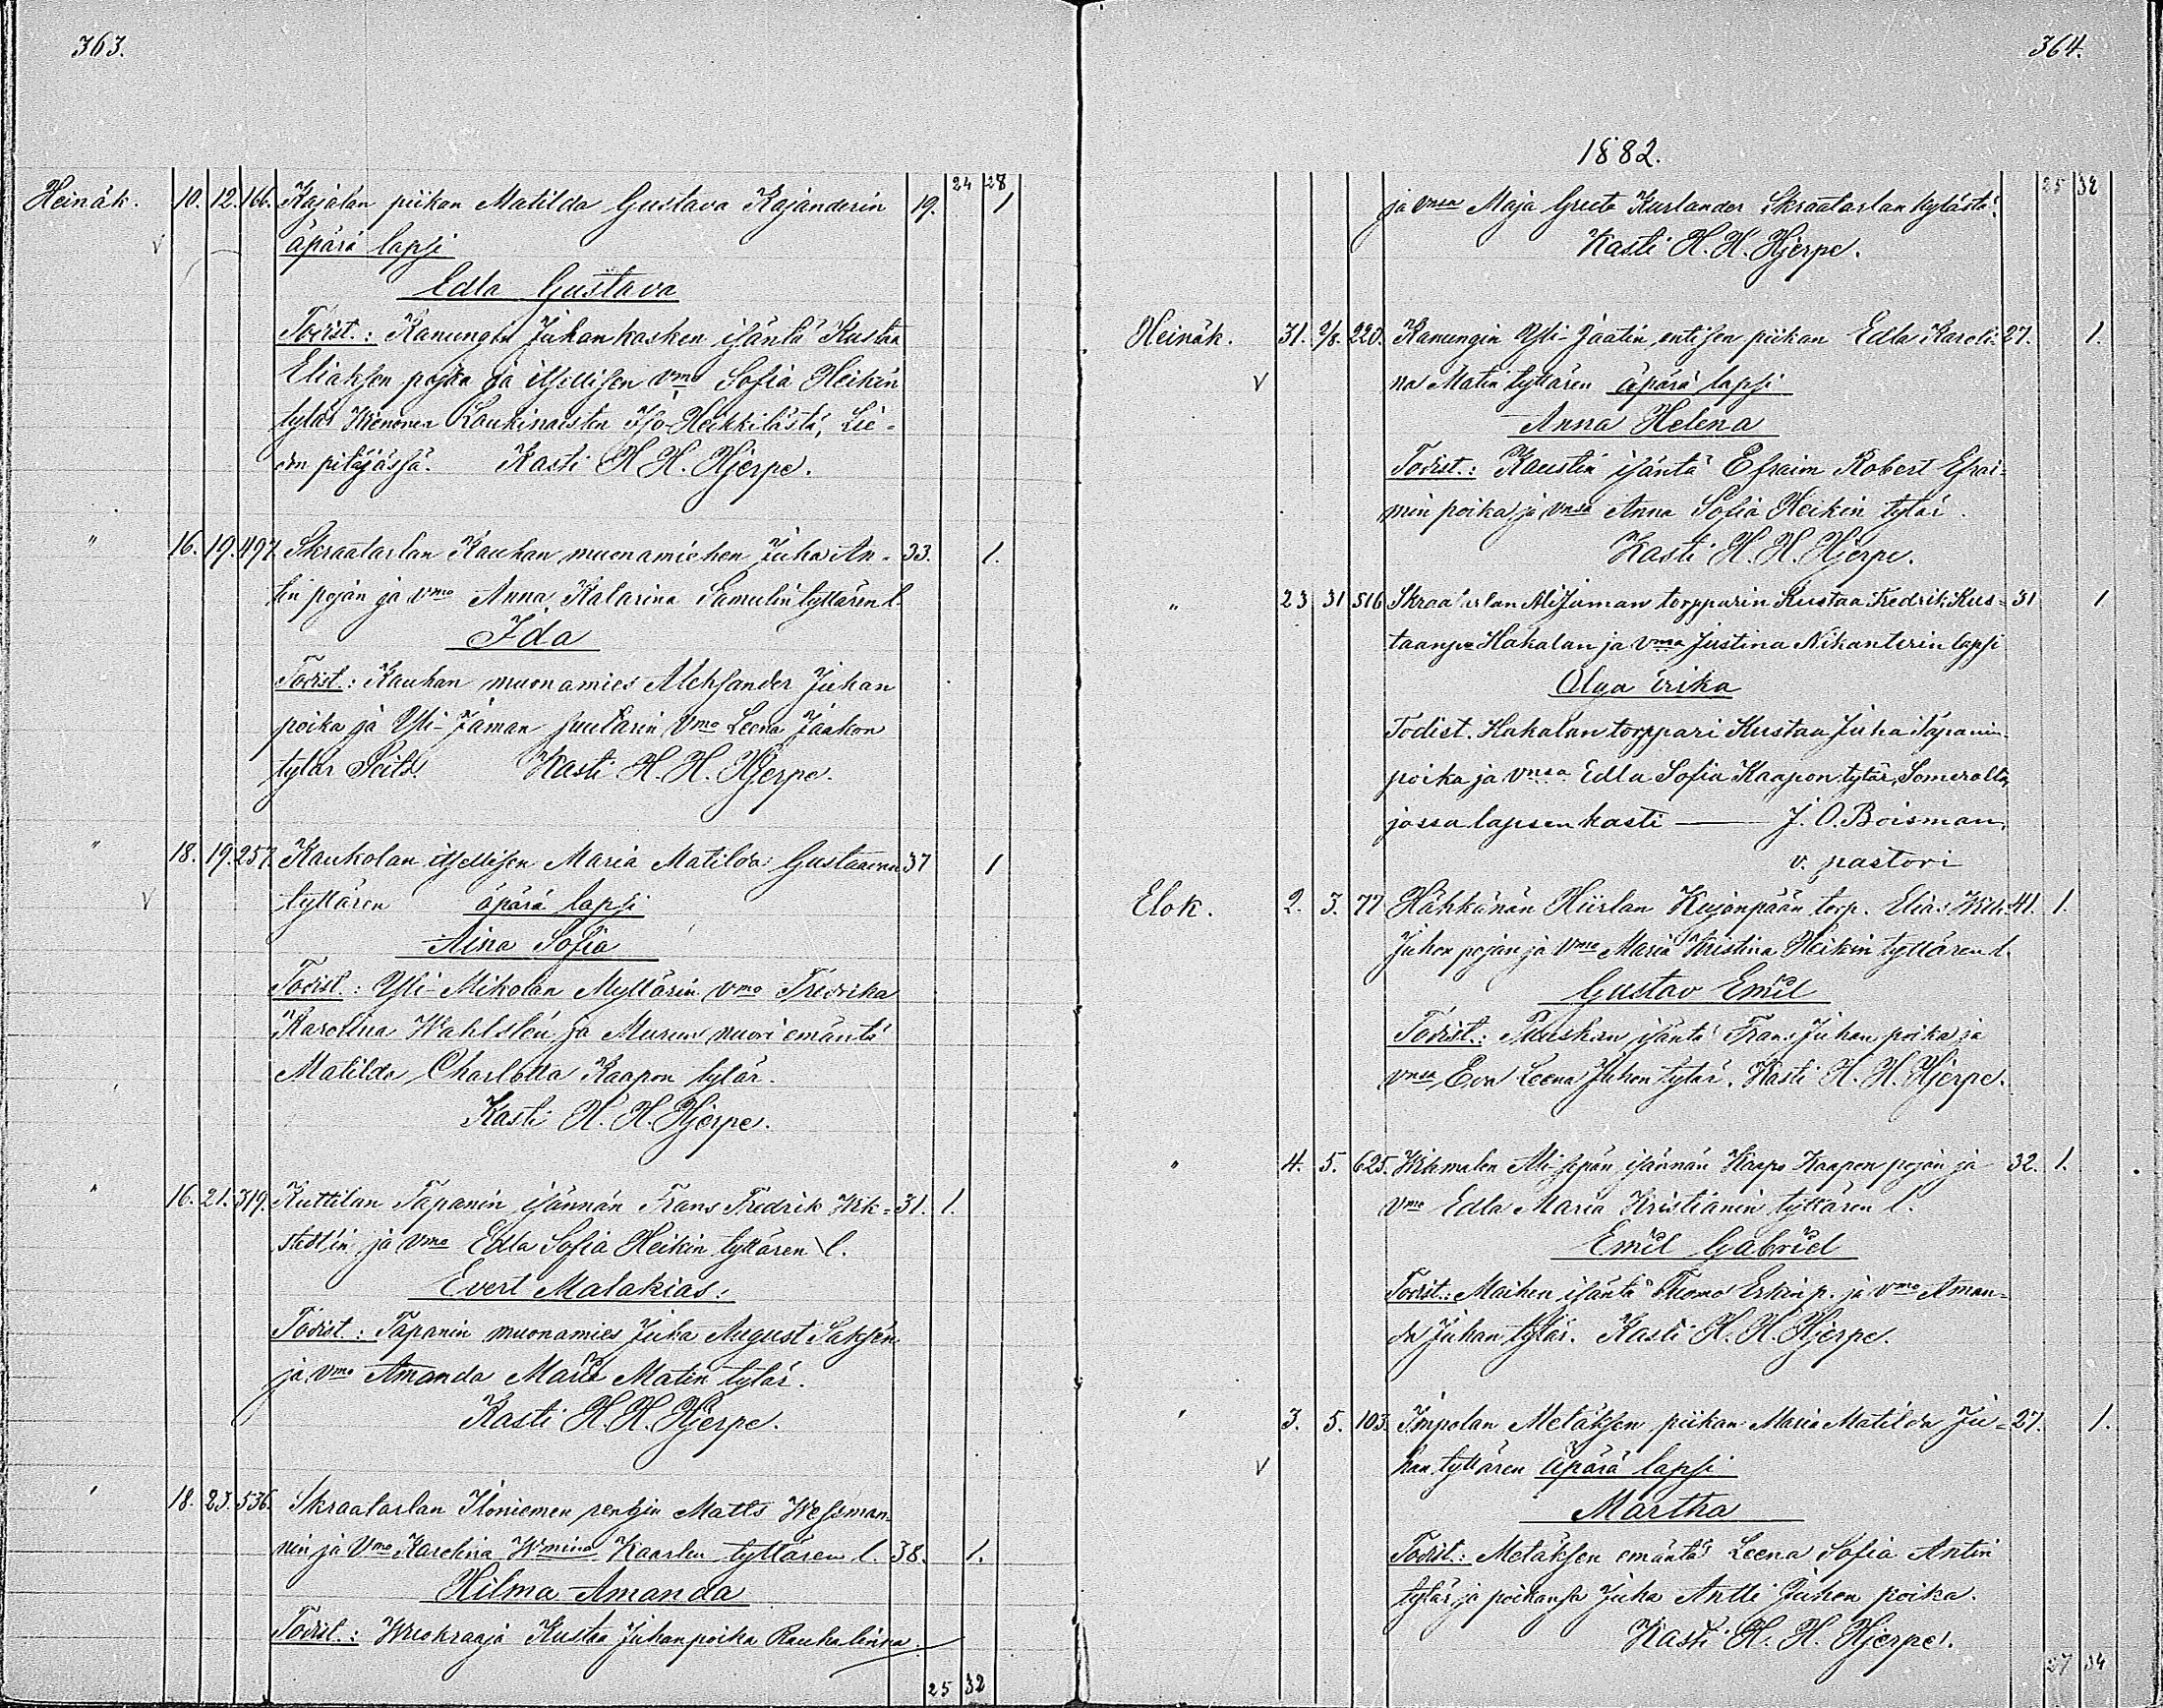 363.
24 28
Heinäk. 10. 12. 166. Kajalan piikan Matilda Gustava Kajanderin 19. 1
äpärä lapsi
Edla Gustava
Todist.: Kanungin Juhankosken isäntä Kustaa
Eliaksen poika ja itsellisen vmo Sofia Heikin
tytär Loukinaisten Iso-Heikkilästä, Lie-
don pitäjässä. Kasti H. H. Hjerpe.
" 16. 19. 497. Skraatarlan Kauhan muonamiehen Juha An- 33. 1.
tin pojan ja vmo Anna Katarina Samulin tyttären l.
Ida
Todist.: Kauhan muonamies Aleksander Juhan
poika ja Yli-Jäman suutarin vmo Leena Jaakon
tytär Kasti H. H. Hjerpe.
" 18. 19. 257. Kaukolan itsellisen Maria Matilda Gustaavan 37 1
tyttären äpärä lapsi
Aina Sofia
Todist.: Yli-Mikolan Myllärin vmo Fredrika
Karolina Wahlstén ja Murun nuori emäntä
Matilda Charlotta Kaapon tytär.
Kasti H. H. Hjerpe.
" 16. 21. 319. Kuttilan Tapanin isännän Frans Fredrik Wik- 31. 1.
stedtin ja vmo Edla Sofia Heikin tyttären l.
Evert Malakias.
Todist.: Tapanin muonamies Juha August Saksén
ja vmo Amanda Maria Matin tytär.
Kasti H. H. Hjerpe.
" 18. 23. 536. Skraatarlan Iloniemen renkin Matts Wessman-
nin ja vmo Karolina Wmina Kaarlen tyttären l. 38. 1.
Hilma Amanda
Todist.: Wuokraaja Kustaa Juhanpoika Rauhalinna
25 32
364.
1882.
25 32
ja vnsa Maja Greeta Kurlander Skraatarlan kylästä.
Kasti H. H. Hjerpe.
Heinäk. 31. 2/8. 220. Kanungin Yli-Jaatin entisen piikan Edla Karoli- 27. 1.
na Matin tyttären äpärä lapsi
Anna Helena
Todist.: Kaustin isäntä Efraim Robert Efrai-
min poika ja vnsa Anna Sofia Heikin tytär.
Kasti H. H. Hjerpe.
" 23 31 516 Skraatarlan AliJäman torpparin Kustaa Fredrik Kus- 31 1
taanpo Hakalan ja vnsa Justina Nikanterin lapsi
Olga Erika
Todist. Hakalan torppari Kustaa Juha Tapanin
poika ja vnsa Edla Sofia Kaapon tytär, Somerolta,
jossa lapsen kasti —— J. O. Boisman,
v. pastori
Elok. 2. 3. 77 Hähkänän Hiirlan Kujanpään torp. Elias Wilh. 41. 1.
Juhon pojan ja vmo Maria Kristina Heikin tyttären l.
Gustav Emil
Todist.: isäntä Frans Juhan poika ja
vnsa Eva Leena Juhon tytär. Kasti H. H. Hjerpe.
" 4. 5. 625. Wihmalon Ali Sepän isännän Kaapo Kaapon pojan ja 32. 1.
vmo Edla Maria Kristianin tyttären l.
Emil Gabriel
Todist.: Maihen isäntä Tuomo Erkin p. ja vmo Aman-
da Juhan tytär. Kasti H. H. Hjerpe.
" 3. 5. 103. Impolan Metäksen piikan Maria Matilda Ju- 27. 1.
han tyttären äpärä lapsi
Martha
Todist.: Metäksen emäntä Leena Sofia Antin
tytär ja poikansa Juha Antti Juhon poika.
Kasti H. H. Hjerpe.
27 34